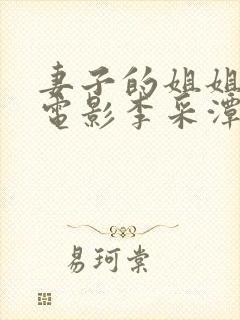 妻子的姐姐
電影李采潭
易珂棠